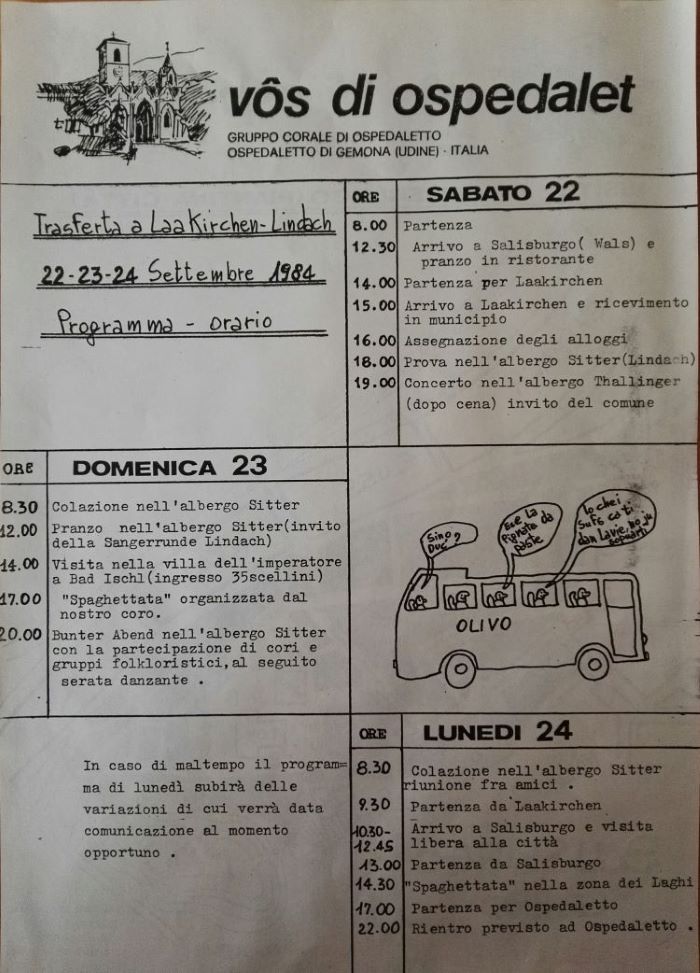 vôs di ospedalet
GRUPPO CORALE DI OSPEDALETTO
OSPEDALETTO DI GEMONA (UDINE) · ITALIA
Trasferta a Laakirchen-Lindach
22-23-24 Settembre 1984
Programma - orario
ORE SABATO 22
8.00 Partenza
12.30 Arrivo a Salisburgo( Wals) e
pranzo in ristorante
14.00 Partenza per Laakirchen
15.00 Arrivo a Laakirchen e ricevimento
in municipio
16.00 Assegnazione degli alloggi
18.00 Prova nell'albergo Sitter(Lindach)
19.00 Concerto nell'albergo Thallinger
(dopo cena) invito del comune
ORE DOMENICA 23
8.30 Colazione nell'albergo Sitter
12.00 Pranzo nell'albergo Sitter(invito
della Sangerrunde Lindach)
14.00 Visita nella villa dell'imperatore
a Bad Ischl(ingresso 35scellini)
17.00 "Spaghettata" organizzata dal
nostro coro.
20.00 Bunter Abend nell'albergo Sitter
con la partecipazione di cori e
gruppi folkloristici,al seguito
serata danzante .
Sino
Duc?
la
Pignata da
Paste
Io chei
ca ti
dan
OLIVO
In caso di maltempo il program=
ma di lunedì subirà delle
variazioni di cui verrà data
comunicazione al momento
opportuno .
ORE LUNEDI 24
8.30 Colazione nell'albergo Sitter
riunione fra amici .
9.30 Partenza da Laakirchen
10.30- Arrivo a Salisburgo e visita
12.45 libera alla città
13.00 Partenza da Salisburgo
14.30 "Spaghettata" nella zona dei Laghi
17.00 Partenza per Ospedaletto
22.00 Rientro previsto ad Ospedaletto .